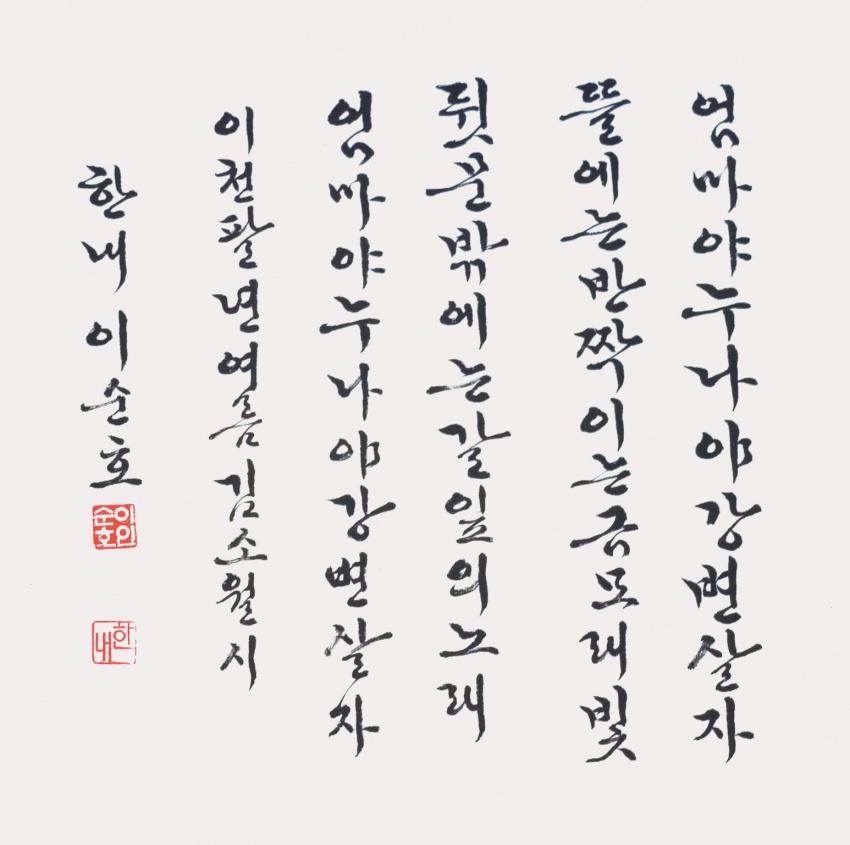 엄마야누나야강변살자
뜰에는반짝이는금모래빛
뒷문밖에는갈잎의노래
엄마야누나야강변살자
이천팔년여름김소월시
한내이순호
한내